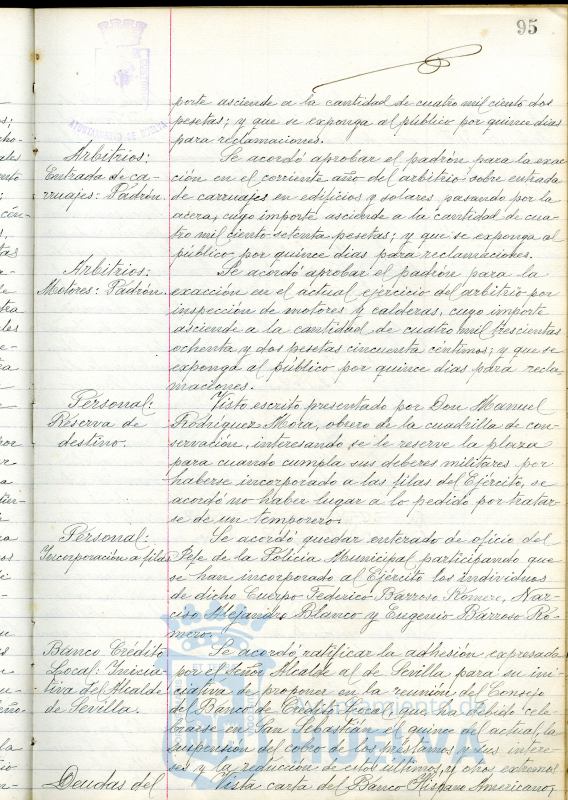 95
AYUNTAMIENTO DE HUELVA
porte asciende a la cantidad de cuatro mil ciento dos
pesetas; y que se exponga al público por quince dias
para reclamaciones.
Arbitrios:
Entrada de ca-
rruajes: Padrón.
Se acordó aprobar el padrón para la exac
ción en el corriente año del arbitrio sobre entrada
de carruajes en edificios y solares pasando por la
acera, cuyo importe asciende a la cantidad de cua
tro mil ciento setenta pesetas; y que se exponga al
público por quince dias para reclamaciones.
Arbitrios:
Motores: Padrón.
Se acordó aprobar el padrón para la
exacción en el actual ejercicio del arbitrio por
inspección de motores y calderas, cuyo importe
asciende a la cantidad de cuatro mil trescientas
ochenta y dos pesetas cincuenta céntimos; y que se
exponga al público por quince dias para recla
maciones.
Personal:
Reserva de
destino.
Visto escrito presentado por Don Manuel
Rodríguez Mora, obrero de la cuadrilla de con-
servación, interesando se le reserve la plaza
para cuando cumpla sus deberes militares por
haberse incorporado a las filas del Ejército, se
acordó no haber lugar a lo pedido por tratar-
se de un temporero.
Personal:
Incorporación a filas
Se acordó quedar enterado de oficio del
Jefe de la Policía Municipal participando que
se han incorporado al Ejército los individuos
de dicho Cuerpo Federico Barroso Romero, Nar-
ciso Alejandro Blanco y Eugenio Barroso Ro-
mero.
Banco Crédito
Local: Inicia-
tiva del Alcalde
de Sevilla.
Se acordó ratificar la adhesión expresada
por el señor Alcalde al de Sevilla para su ini-
ciativa de proponer en la reunión del Consejo
del Banco de Crédito Local, que ha debido cele-
brarse en San Sebastián el quince del actual, la
suspensión del cobro de los préstamos y sus intere-
ses y la reducción de estos últimos, y otros extremos
Deudas del
Vista carta del Banco Hispano Americano,
Ayuntamiento de
HUELVA